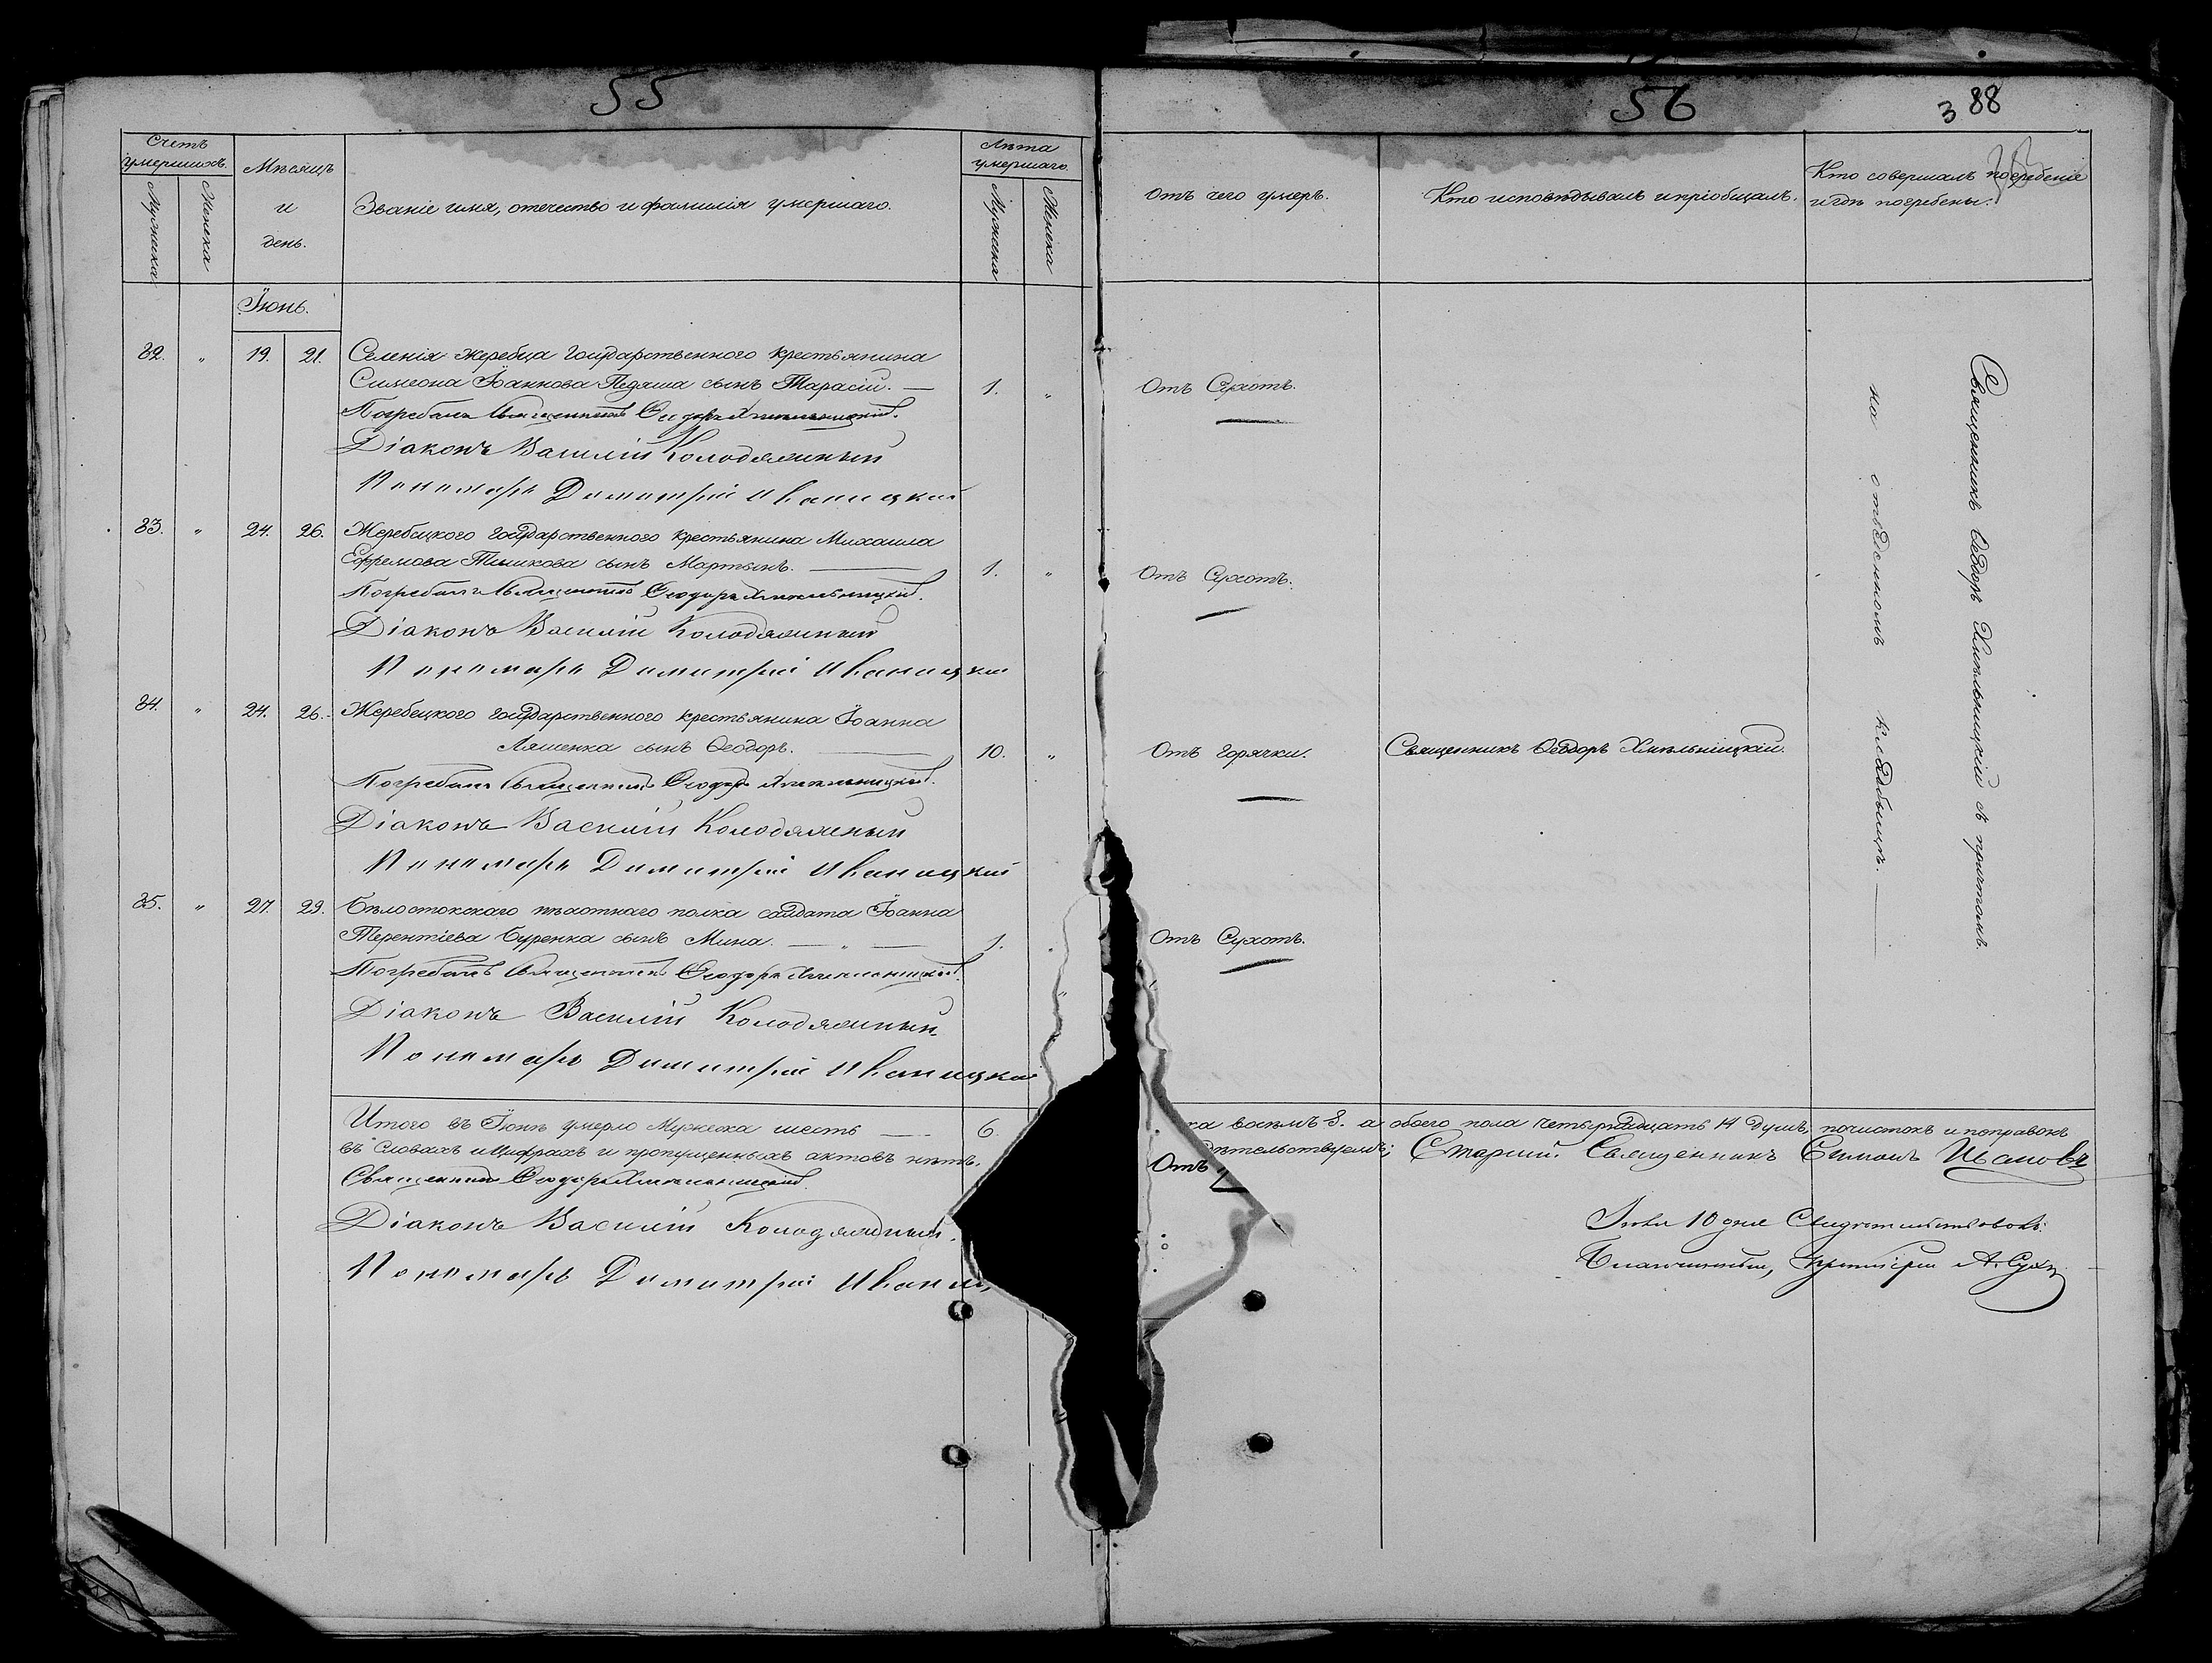 55
Счетъ умершихъ.
Мужеска
Женска
Мѣсяцъ и день.
Званіе имя, отечество и фамилія умершаго.
Лѣта умершаго.
Мужеска
Женска
Іюнь.
32. " 19. 21. Селенія Жеребца Государственного крестьянина
Симеона Іоаннова Педяша сынъ Тарасій. — 1. "
Погребалъ Священникъ Ѳеодоръ Хмѣльницкій.
Діаконъ Василій Колодяжный
Пономарь Димитрій Иваницкій
33. " 24. 26. Жеребецкого государственного крестьянина Михаила
Ефремова Тимикова сынъ Мартынъ. — 1. "
Погребалъ Священникъ Ѳеодоръ Хмѣльницкій.
Діаконъ Василій Колодяжный
Пономарь Димитрій Иваницкій
34. " 24. 26. Жеребецкого государственного крестьянина Іоанна
Ляшенка сынъ Ѳеодоръ. — 10. "
Погребалъ Священникъ Ѳеодоръ Хмѣльницкій.
Діаконъ Василій Колодяжный
Пономарь Димитрій Иваницкій
35. " 27. 29. Бѣлостокскаго пѣхотнаго полка солдата Іоанна
Терентіева Буренка сынъ Мина. — " — 1. "
Погребалъ Священникъ Ѳеодоръ Хмѣльницкій.
Діаконъ Василій Колодяжный
Пономарь Димитрій Иваницкій
Итого въ Іюнѣ умерло Мужеска шесть — 6.
въ словахъ и Цифрахъ и пропущенныхъ актовъ нѣтъ.
Священникъ Ѳеодоръ Хмѣльницкій.
Діаконъ Василій Колодяжный.
Пономарь Димитрій
56
388
Отъ чего умеръ.
Кто исповѣдывалъ и пріобщалъ.
Кто совершалъ погребеніе
и гдѣ погребены.
Отъ Сухотъ.
Отъ Сухотъ.
Отъ горячки. Священникъ Ѳеодоръ Хмѣльницкій.
Отъ Сухотъ.
Священникъ Ѳеодоръ Хмѣльницкій съ причтомъ.
на отведенномъ кладбищѣ. —
восемъ 8. а обоего пола четырнадцать 14 душъ, почистокъ и поправокъ
Старший Священникъ Симонъ
Отъ
10 дня Свидѣтельствовалъ:
Благочинный, А.